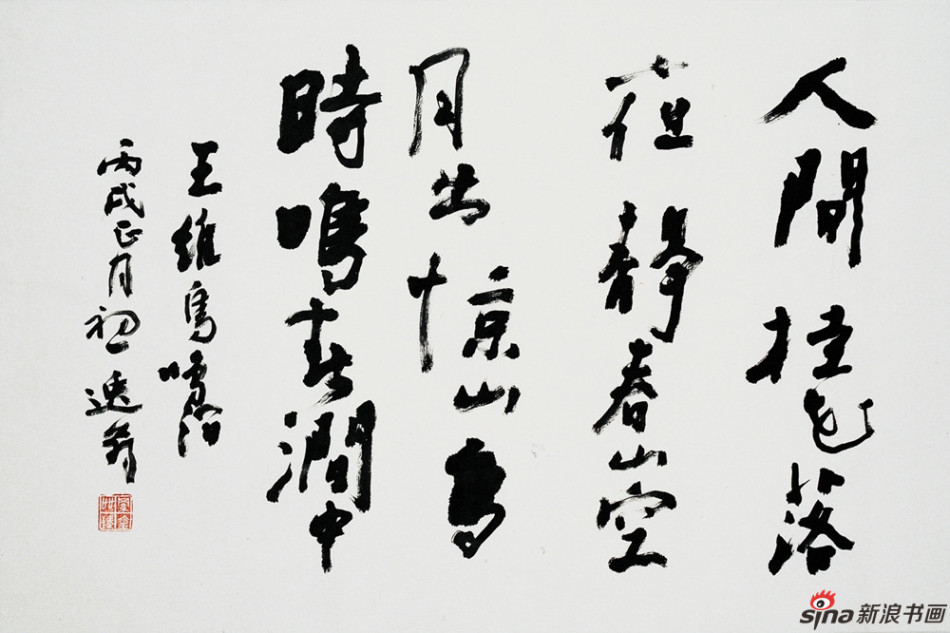 人間桂花落
夜靜春山空
月出惊山鳥
時鳴春澗中
王維鳥鳴澗
丙戌正月初逸翁
sina新浪书画